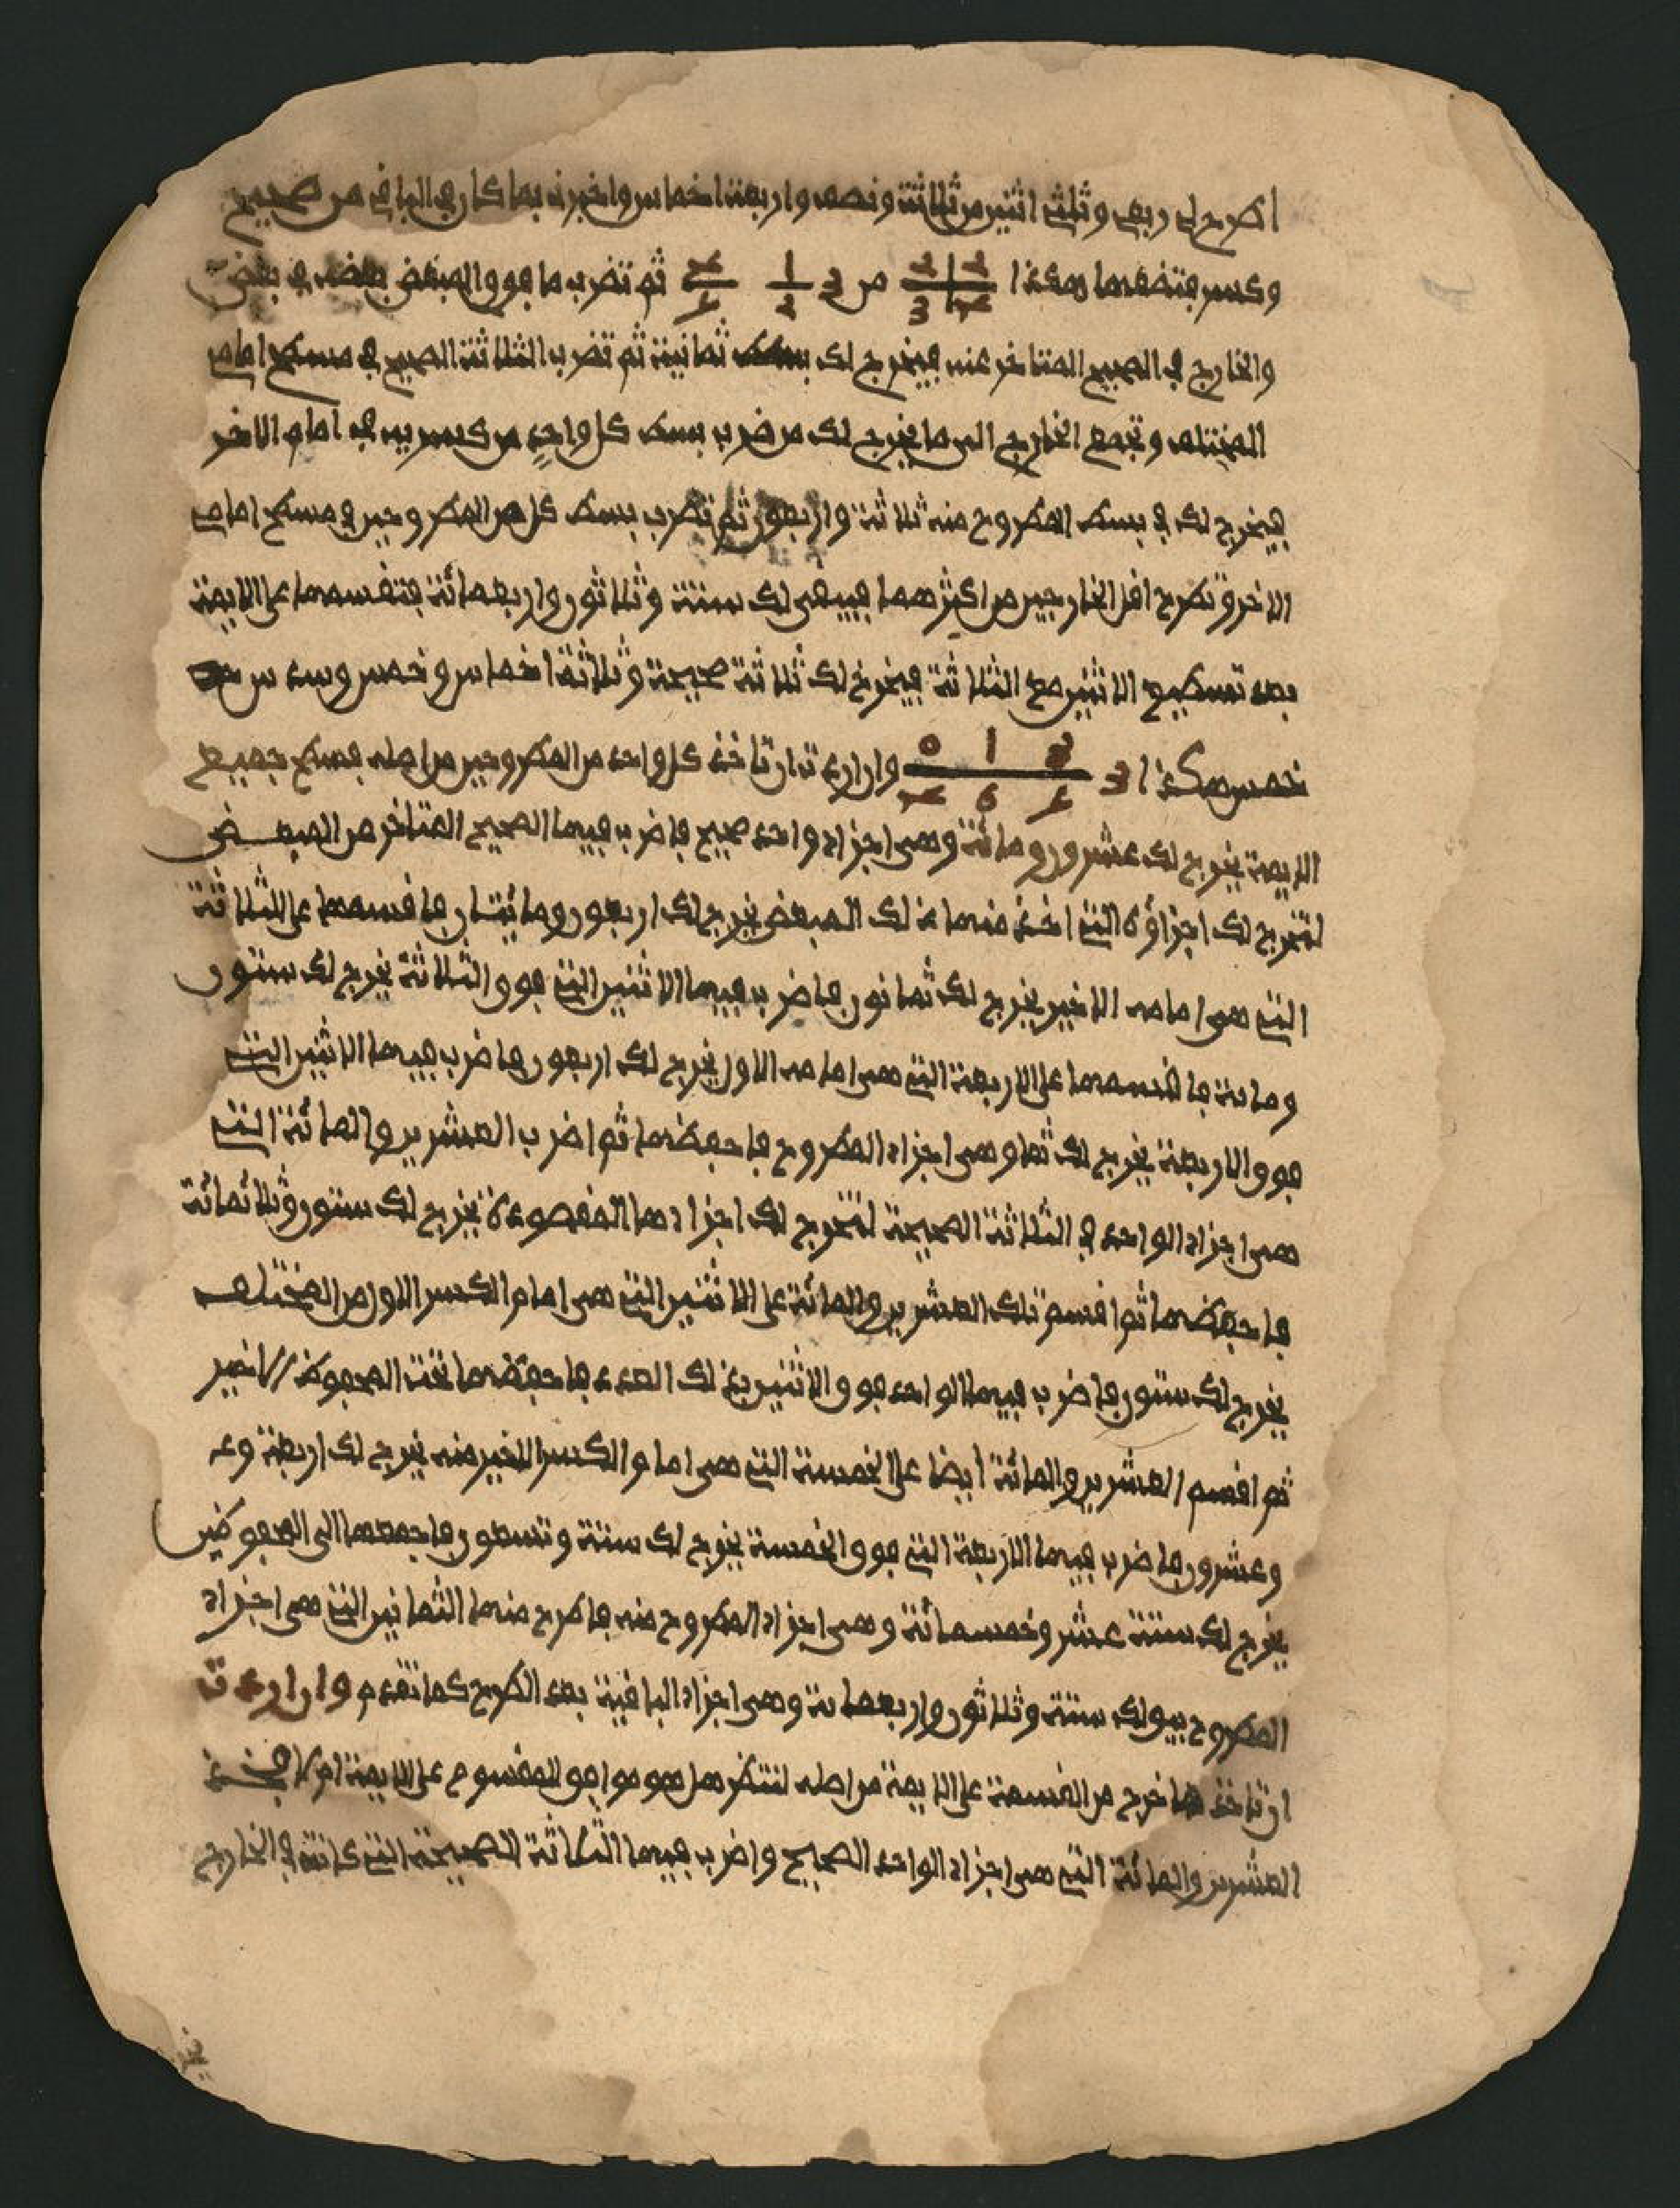 اطرح لي ربع وثلث اثنين من ثلاثة ونصف واربعة اخماس واخبرني بما كان في الباقي من صحيح
وكسر فتضعهما هكذا 2 2 / 4 3 من 3 1/2 4/5 ثم تضرب ما فوق المبعض بعضه في بعض
والخارج في الصحيح المتاخر عنه فيخرج لك بسطه ثمانية ثم تضرب الثلاثة الصحيح في مسطح امام
المختلف وتجمع الخارج الى ما يخرج لك من ضرب بسط كل واحد من كسريه في امام الاخر
فيخرج لك في بسط المطروح منه ثلاثة واربعون ثم تضرب بسط كل من المطروحين في مسطح امام
الاخر وتطرح اقل الخارجين من اكثرهما فيبقى لك ستة وثلاثون واربعمائة فتقسمها على الايمة
بعد تسطيح الاثنين مع الثلاثة فيخرج لك ثلاثة صحيحة وثلاثة اخماس وخمس وسدس
خمس هكذا 3 3 1 0 / 5 6 4 وان اردت ان تاخذ كل واحد من المطروحين من اصله فسطح جميع
الايمة يخرج لك عشرون ومائة وهي اجزاء واحد صحيح فاضرب فيها الصحيح المتاخر من المبعض
لتخرج لك اجزاؤه التي اخذ منها ذلك المبعض يخرج لك اربعون ومائتان فاقسمها على الثلاثة
التي هي امامه الاخير يخرج لك ثمانون فاضرب فيها الاثنين التي فوق الثلاثة يخرج لك ستون
ومائة فاقسمها على الاربعة التي هي امامه الاول يخرج لك اربعون فاضرب فيها الاثنين التي
فوق الاربعة يخرج لك ثمانون وهي اجزاء المطروح فاحفظها ثم اضرب العشرين والمائة التي
هي اجزاء الواحد في الثلاثة الصحيحة لتخرج لك اجزاءها المقصودة يخرج لك ستون وثلاثمائة
فاحفظها ثم اقسم تلك العشرين والمائة على الاثنين التي هي امام الكسر الاول من المختلف
يخرج لك ستون فاضرب فيها الواحد فوق الاثنين بذلك العدد فاحفظها تحت المحفوظ الاخير
ثم اقسم العشرين والمائة ايضا على الخمسة التي هي امام الكسر الاخير منه يخرج لك اربعة وعـ
وعشرون فاضرب فيها الاربعة التي فوق الخمسة يخرج لك ستة وتسعون فاجمعها الى المحفوظين
يخرج لك ستة عشر وخمسمائة وهي اجزاء المطروح منه فاطرح منها الثمانين التي هي اجزاء
المطروح يبق لك ستة وثلاثون واربعمائة وهي اجزاء الباقية بعد الطرح كما تقدم وان اردت
ان تاخذ ما خرج من القسمة على الايمة من اصله لتنظر هل هو موافق للمقسوم على الايمة ام لا فخذ
العشرين والمائة التي هي اجزاء الواحد الصحيح واضرب فيها الثلاثة الصحيحة التي كانت في الخارج